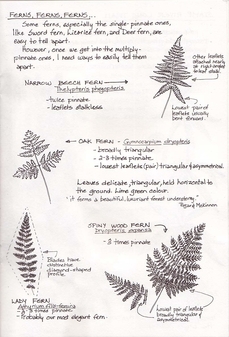 FERNS, FERNS, FERNS,...
Some ferns, especially the single-pinnate ones,
like Sword fern, Licorice fern, and Deer fern, are
easy to tell apart.
However, once we get into the multiply-
pinnate ones, I need ways to easily tell them
apart.
Other leaflets
attached nearly
at right angles
to leaf stalk.
NARROW BEECH FERN
Thelypteris phegopteris
- twice pinnate
- leaflets stalkless
Lowest pair of
leaflets usually
bent forward.
OAK FERN - Gymnocarpium dryopteris
- broadly triangular
- 2-3 times pinnate
- lowest leaflets (pair) triangular & asymmetrical.
Leaves delicate, triangular, held horizontal to
the ground. Lime green colour.
"it forms a beautiful, luxuriant forest understory."
MacKinnon
SPINY WOOD FERN
Dryopteris expansa
- 3 times pinnate
Blades have
distinctive
diamond-shaped
profile.
LADY FERN
Athyrium filix-femina
- 2-3 times pinnate
- Probably our most elegant fern.
Lowest pair of leaflets
broadly triangular &
asymmetrical.